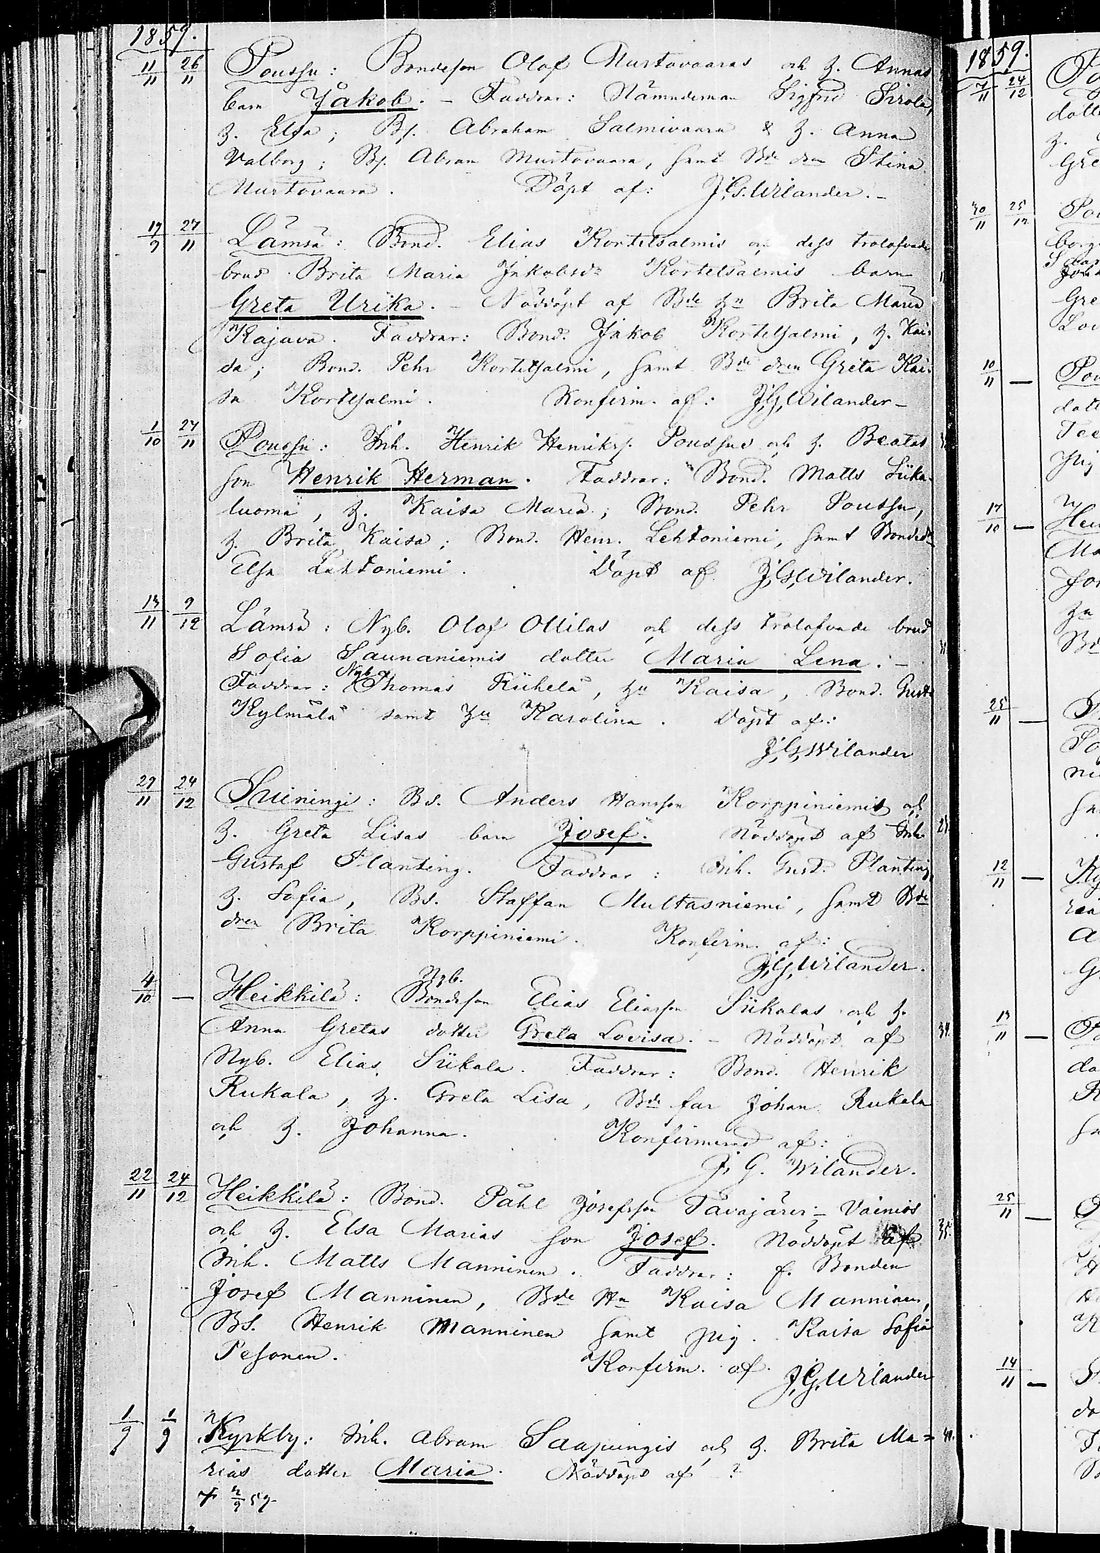 1859.
11/11 26/11 Poussu: Bondeson Olof Murtovaaras och h. Annas
barn Jakob. – Faddrar: Nämndeman Sigfrid Sirola,
h. Elsa; Bs. Abraham Salmivaara & h. Anna
Valborg; Bs. Abram Murtovaara, samt Bde drn Stina
Murtovaara. Döpt af: J.G. Wilander. –
19/9 27/11 Lämsä: Bond. Elias Kortetsalmis och dess trolofvade
brud Brita Maria Jakobsdr Kortetsalmis barn
Greta Ulrika. – Nöddöpt af Bde hu Brita Maria
Kajava. Faddrar: Bond. Jakob Kortetsalmi, h. Kai-
sa; Bond. Pehr Kortetsalmi, samt Bde drn Greta Kai-
sa Kortetsalmi. Konfirm. af: J.G. Wilander –
1/10 27/11 Poussu: Inh. Henrik Henriks. Poussus och h. Beatas
son Henrik Herman. Faddrar: Bond. Matts Sika-
luoma, h. Kaisa Maria; Bond. Pehr Poussu,
h. Brita Kaisa; Bond. Henr. Lehtoniemi, samt Bonded.
Elsa Lehtoniemi. Döpt af J.G. Wilander.
13/11 9/12 Lämsä: Nyb. Olof Ollilas och dess trolofvade brud
Sofia Saunaniemis dotter Maria Lena. –
Faddrar: Nyb. Thomas Riihelä, hu Kaisa, Bond. Gust.
Kylmälä samt hu Karolina. Döpt af:
J.G. Wilander
27/11 24/12 Suiningi: Bs. Anders Hansson Korppiniemis och
h. Greta Lisas barn Josef. Nöddöpt af Inh.
Gustaf Planting. Faddrar: Inh. Gust. Planting,
h. Sofia, Bs. Staffan Multasniemi, samt Bde
drn Brita Korppiniemi. Konfirm. af:
J.G. Wilander.
4/10 – Heikkilä: Nyb. Bondeson Elias Eliasson Siikalas och h.
Anna Gretas dotter Greta Lovisa. – Nöddöpt af
Nyb. Elias Siikala. Faddrar: Bond. Henrik
Rukala, h. Greta Lisa, Bde far Johan Rukala
och h. Johanna. Konfirmerad af:
J. G. Wilander.
22/11 24/12 Heikkilä: Bond. Påhl Josefsson Tavajärvi-Vainios
och h. Elsa Marias son Josef. Nöddöpt af
Inh. Matts Manninen. Faddrar: f. Bonden
Josef Manninen, Bde Hu Kaisa Manninen,
Bs. Henrik Manninen samt pig. Kaisa Sofia
Pesonen. Konfirm. af J.G. Wilander
1/9 1/9 Kyrkby: Inh. Abram Saapungis och h. Brita Ma-
rias dotter Maria. Nöddöpt af ?
† 2/9 59
1859.
7/11 24/12
dotte
h.
Gre
30/11 25/12
Gre
10/11 –
dott
17/10 –
Ma
25/11 –
12/11 –
13/11 –
25/11 –
14/11 –